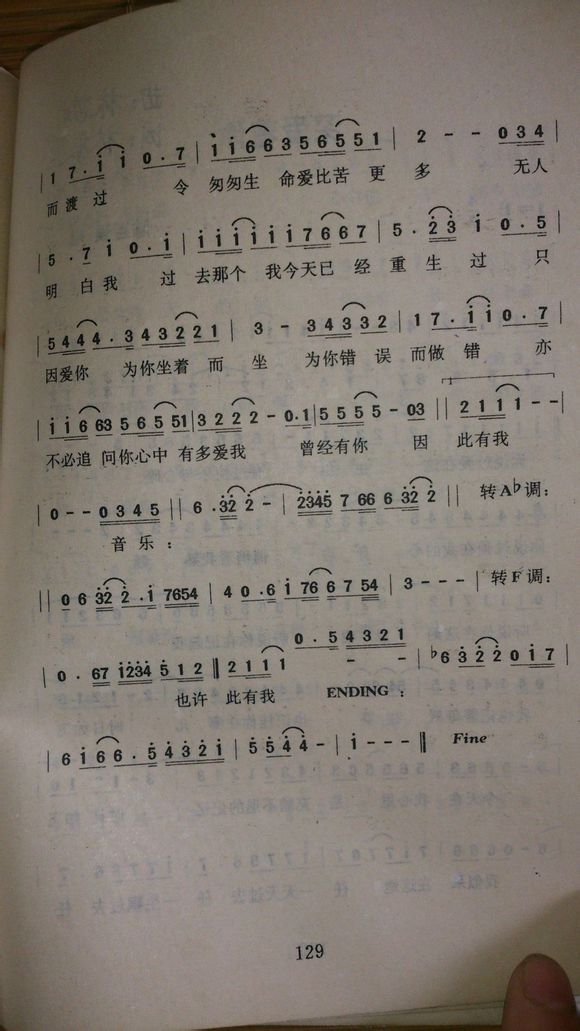 1 7 . i i 0 . 7 | i i 6 6 3 5 6 5 5 1 | 2 - - 0 3 4 |
而渡过 令匆匆生 命爱比苦 更 多 无人
5 . 7 i 0 . i | i i i i i i 7 6 6 7 | 5 . 2 3 i 0 . 5 |
明 白我 过 去那个 我今天已 经 重 生 过 只
5 4 4 4 . 3 4 3 2 2 1 | 3 - 3 4 3 3 2 | 1 7 . i i 0 . 7 |
因爱你 为你坐着 而 坐 为你错 误 而做 错 亦
i i 6 63 5 6 5 51 | 3 2 2 2 - 0 . 1 | 5 5 5 5 - 03 || 2 1 1 1 - - |
不必追 问你心中 有多爱我 曾经有你 因 此有我
0 - - 0 3 4 5 || 6 . 32 2 - | 2345 7 66 6 32 2 || 转A♭调:
音 乐:
|| 0 6 32 2 . i 7654 | 4 0 . 6 i 76 6 7 54 | 3 - - - | 转F调:
0 . 5 4 3 2 1
0 . 67 1234 5 1 2 || 2 1 1 1 - - | ♭6 3 2 2 0 i 7 |
也许 此有我 ENDING:
6 i 6 6 . 5 4 3 2 i | 5 5 4 4 - | i - - - || Fine
129